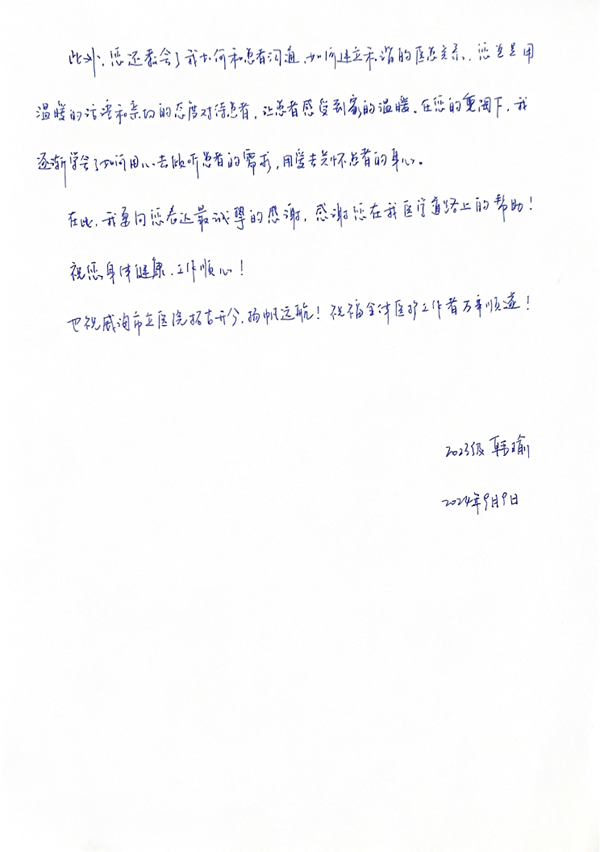 此外，您还教会了我如何和患者沟通，如何建立和谐的医患关系，您总是用
温暖的话语和亲切的态度对待患者，让患者感受到家的温暖。在您的熏陶下，我
逐渐学会了如何用心去倾听患者的需求，用爱去关怀患者的身心。
在此，我要向您表达最诚挚的感谢，感谢您在我医学道路上的帮助！
祝您身体健康，工作顺心！
也祝威海市立医院拓古开今，扬帆远航！祝福全体医务工作者万事顺遂！
2023级 韩瑜
2024年9月9日